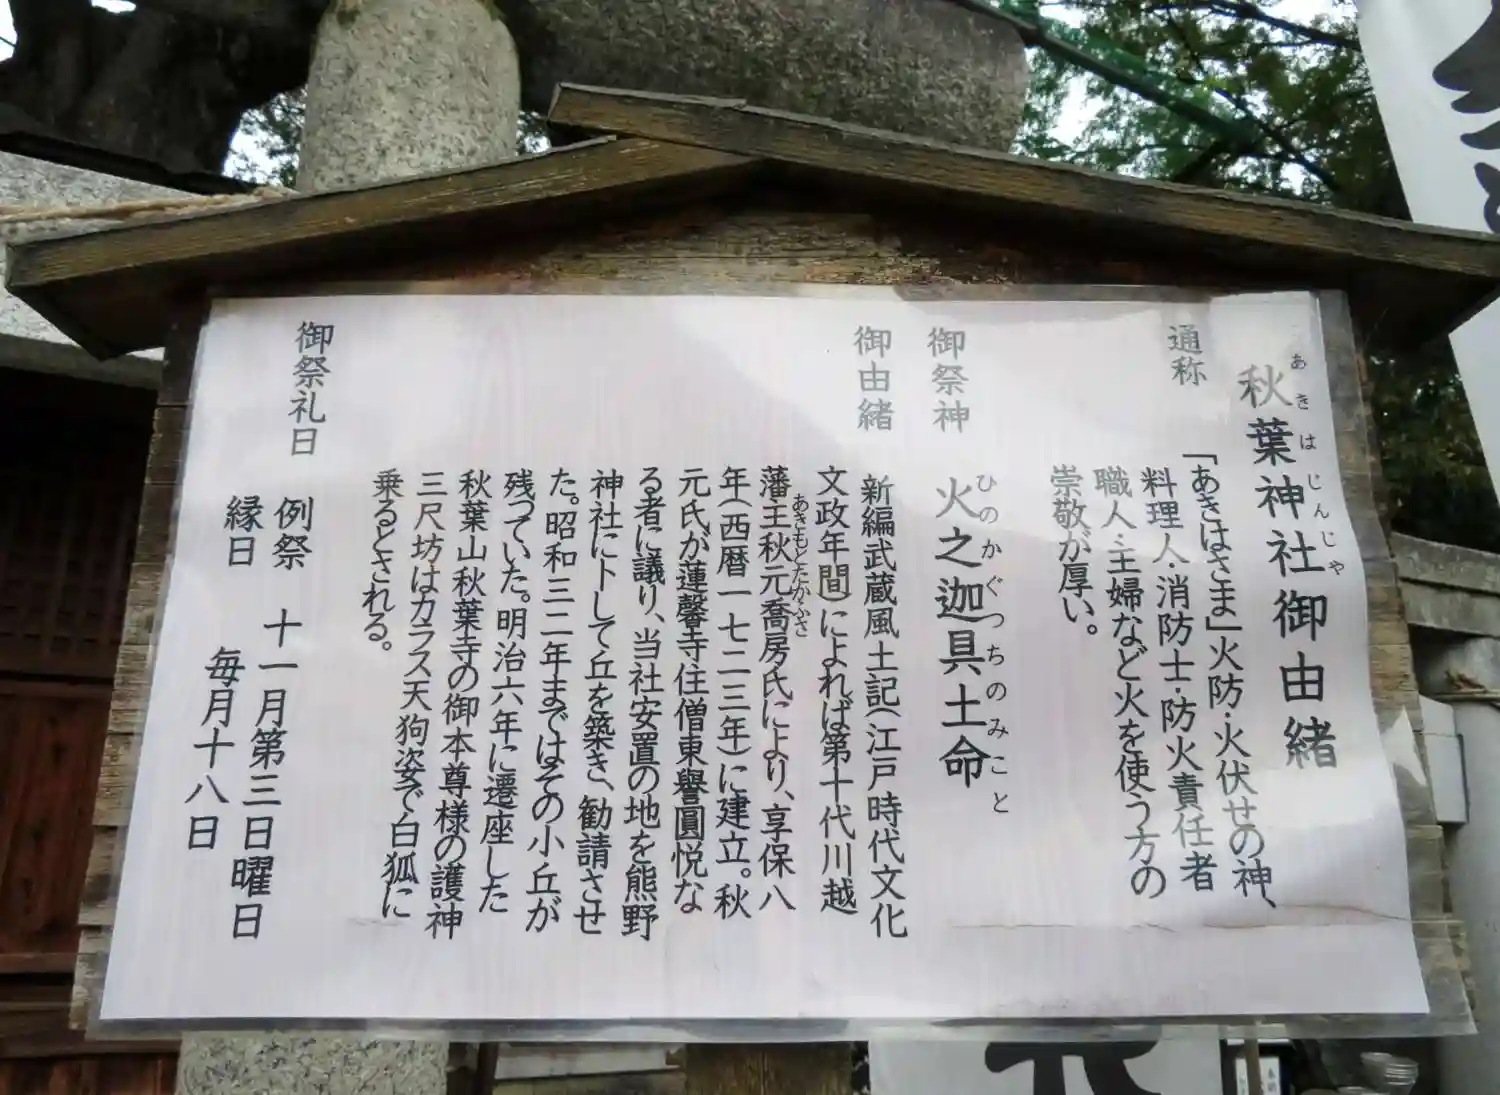 秋葉神社御由緒
あきはじんじゃ
通称
「あきはさま」火防・火伏せの神、
料理人・消防士・防火責任者
職人・主婦など火を使う方の
崇敬が厚い。
御祭神
火之迦具土命
ひのかぐつちのみこと
御由緒
新編武蔵風土記(江戸時代文化
文政年間)によれば第十代川越
藩主秋元喬房氏により、享保八
あきもとたかふさ
年(西暦一七二三年)に建立。秋
元氏が蓮馨寺住僧東譽圓悦な
る者に議り、当社安置の地を熊野
神社にトして丘を築き、勧請させ
た。昭和三二年まではその小丘が
残っていた。明治六年に遷座した
秋葉山秋葉寺の御本尊様の護神
三尺坊はカラス天狗姿で白狐に
乗るとされる。
御祭礼日
例祭 十一月第三日曜日
縁日 毎月十八日